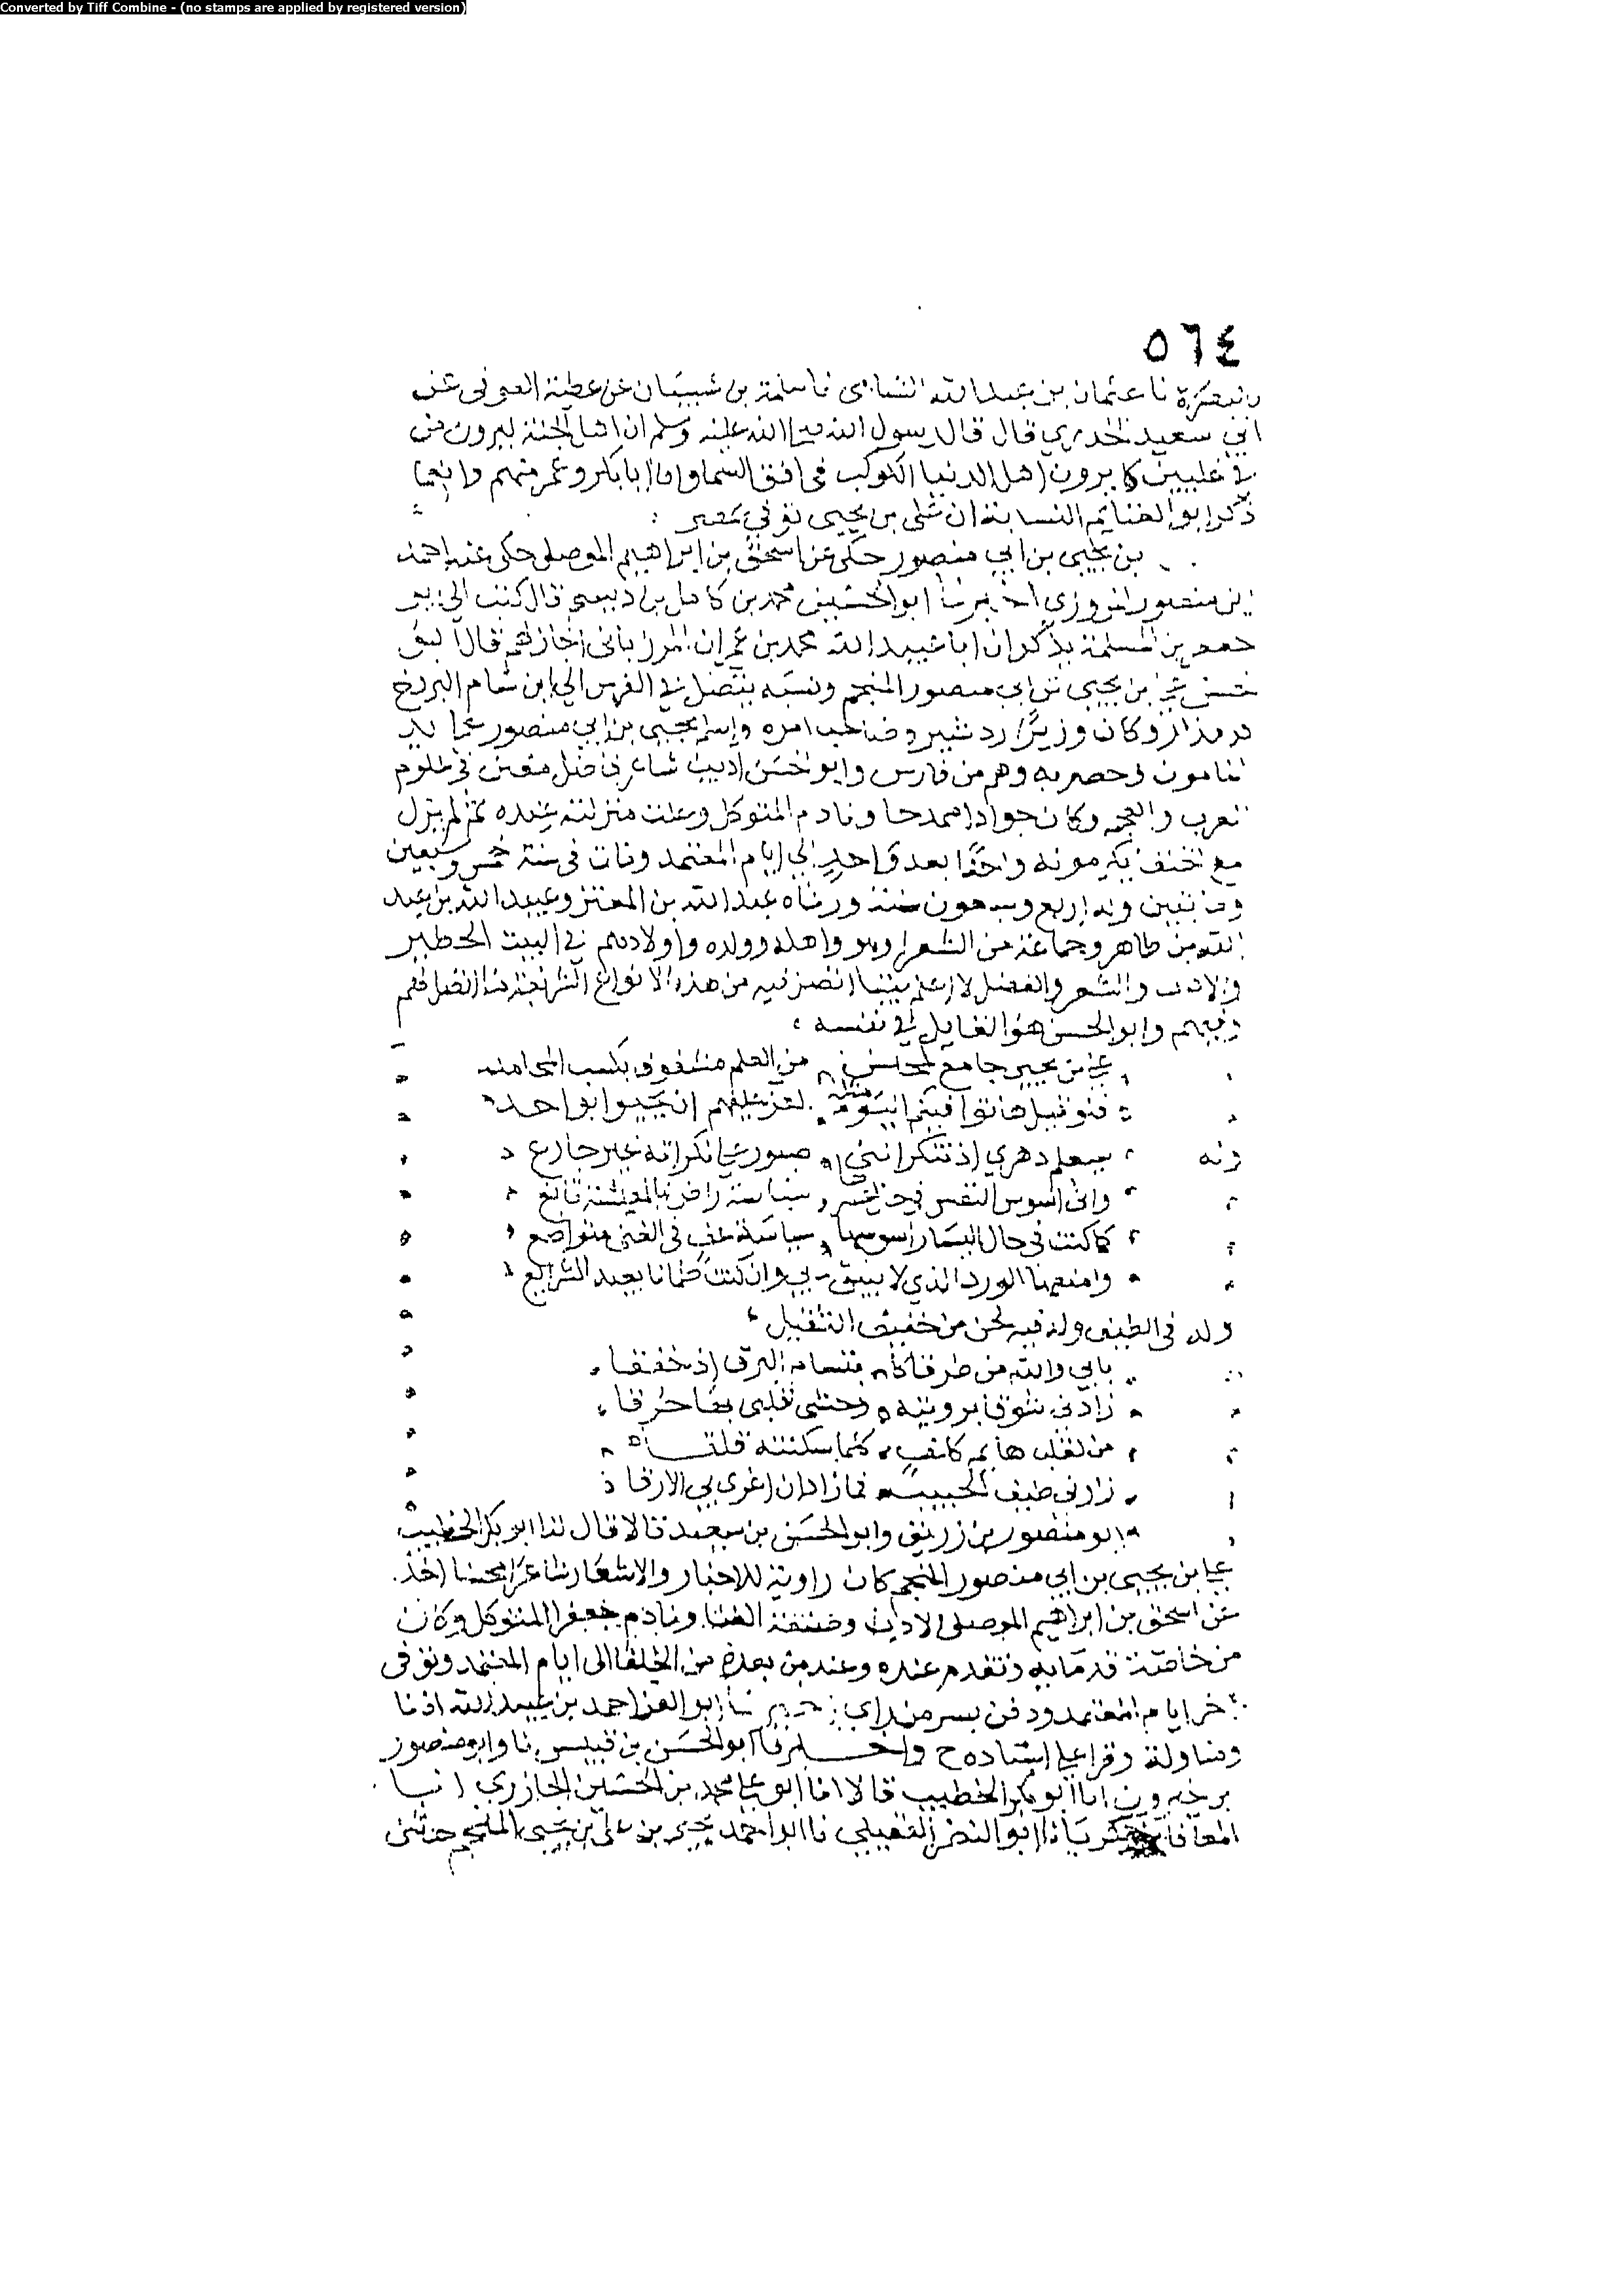 Converted by Tiff Combine - (no stamps are applied by registered version)
٥٦٤
بالبصرة نا عثمان بن عبد الله نا سلمة بن شبيب عن عطية العوفي عن
ابي سعيد الخدري قال قال رسول الله صلى الله عليه وسلم ان اهل الجنة ليرون من
في عليين كما يرون اهل الدنيا الكوكب في افق السما وان ابا بكر وعمر منهم وانعما
ذكر ابو الغنايم النسابة ان علي بن يحيى توفي بمصر
بن يحيى بن ابي منصور حكى عن اسحق بن ابراهيم الموصلي حكى عنه احمد
بن منصور المروزي اخبرنا ابو الحسين محمد بن كامل بن ديسم قال كتب الي
محمد بن المسلمة يذكر ان ابا عبيد الله محمد بن عمران المرزباني اجاز لهم قال ابو
حسن علي بن يحيى بن ابي منصور المنجم ونسبه يتصل في الفرس الى
وكان وزير اردشير وصاحب امره واسلم يحيى بن ابي منصور على يد
المامون وخص به وهم من فارس وابو الحسن اديب شاعر فاضل مفتن في علوم
العرب والعجم وكان جوادا ممدحا ونادم المتوكل وعلت منزلته عنده ثم لم يزل
مع الخلفا يكرمونه واحدا بعد واحد الى ايام المعتمد ومات في سنة خمس وسبعين
ومايتين وله اربع وسبعون سنة ورثاه عبد الله بن المعتز وعبيد الله بن عبد
الله بن طاهر وجماعة من الشعرا وهو واهله وولده واولادهم في البيت الخطير
والادب والشعر والفضل لا اعلم بيتا اتصل فيه من هذه الانواع الشريفة ما اتصل لهم
فيهم وابو الحسن هو القايل في نفسه
علي بن يحيى جامع لمحاسن من العلم مشغوف بكسب المحامد
فلو قيل هاتوا فيكم اليوم مثله لعز عليهم ان يجيوا بواحد
وله سيعلم دهري اذ تنكر انني صبور على نكرايه غير جازع
واني اسوس النفس في حال عسرها سياسة راض بالمعيشة قانع
كما كنت في حال اليسار اسوسها سياسة عف في الغنى متواضع
وامنعها الورد الذي لا يليق بي وان كنت ظمانا بعيد الشرايع
وله في الطيف وله فيه لحن من خفيف الثقيل
بابي والله من طرقا كابتسام البرق اذ خفقا
زادني شوقا برويته وحشى قلبي به حرقا
من لقلب هايم كلف كلما سكنته قلقا
زارني طيف الحبيب فما زاد ان اغرى بي الارقا
ابو منصور بن زريق وابو الحسن بن سعيد قالا قال لنا ابو بكر الخطيب
علي بن يحيى بن ابي منصور المنجم كان راوية للاخبار والاشعار شاعرا محسنا اخذ
عن اسحق بن ابراهيم الموصلي الادب وصنعة الغنا ونادم جعفر المتوكل وكان
من خاصة ندمايه وتقدم عنده وعند من بعده من الخلفا الى ايام المعتمد وتوفي
اخر ايام المعتمد ودفن بسر من راي اخبرنا ابو العز احمد بن عبيد الله اذنا
ومناولة وقرا علي اسناده ح واخبرنا ابو الحسن بن قبيس نا وابو منصور
بن خيرون انا ابو بكر الخطيب قالا انا ابو علي محمد بن الحسين الجازري انبا
المعافا بن زكريا نا ابو النضر العقيلي نا ابو احمد يحيى بن علي بن يحيى المنجم حدثني